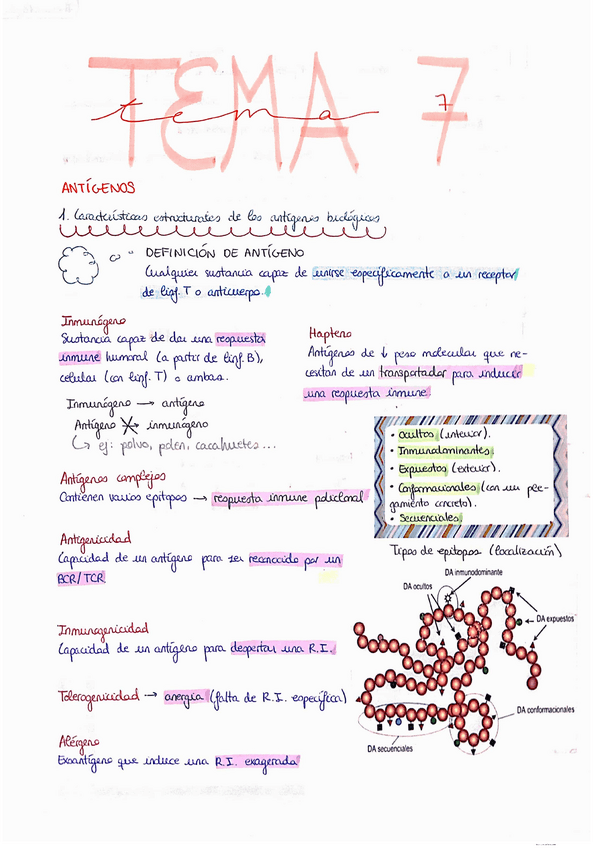 TEMA 7
tema 7
ANTÍGENOS
1. Características estructurales de los antígenos biológicos
DEFINICIÓN DE ANTÍGENO
Cualquier sustancia capaz de unirse específicamente a un receptor
de linf. T o anticuerpo.
Inmunógeno
Sustancia capaz de dar una respuesta
inmune humoral (a partir de linf. B),
celular (con linf. T) o ambas.
Inmunógeno → antígeno
Antígeno inmunógeno
↳ ej: polvo, polen, cacahuetes...
Hapteno
Antígenos de ↓ peso molecular que ne-
cesitan de un transportador para inducir
una respuesta inmune.
Antígenos complejos
Contienen varios epítopos → respuesta inmune policlonal
• Ocultos (interior).
• Inmunodominantes.
• Expuestos (exterior).
• Conformacionales (con un ple-
gamiento concreto).
• Secuenciales.
Tipos de epítopos (localización)
Antigenicidad
Capacidad de un antígeno para ser reconocido por un
BCR/TCR
Inmunogenicidad
Capacidad de un antígeno para despertar una R.I.
Tolerogenicidad → anergia (falta de R.I. específica)
Alérgeno
Exoantígeno que induce una R.I. exagerada
DA inmunodominante
DA ocultos
DA expuestos
DA conformacionales
DA secuenciales